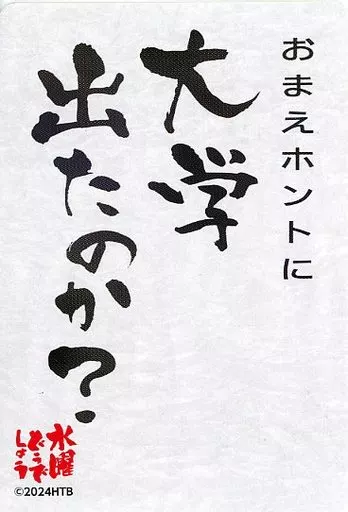 おまえホントに
大学
出たのか?
水曜
どうで
しょう
©2024HTB